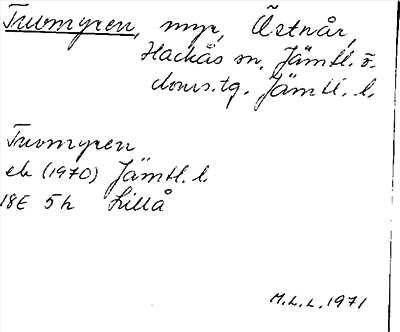 Truomyren, myr, Östnår,
Hackås sn, Jämtl. ö.
doms.tg. Jämtl. l.
Truomyren
ek (1970) Jämtl. l.
18E 5h Lillå
M.L.L. 1971